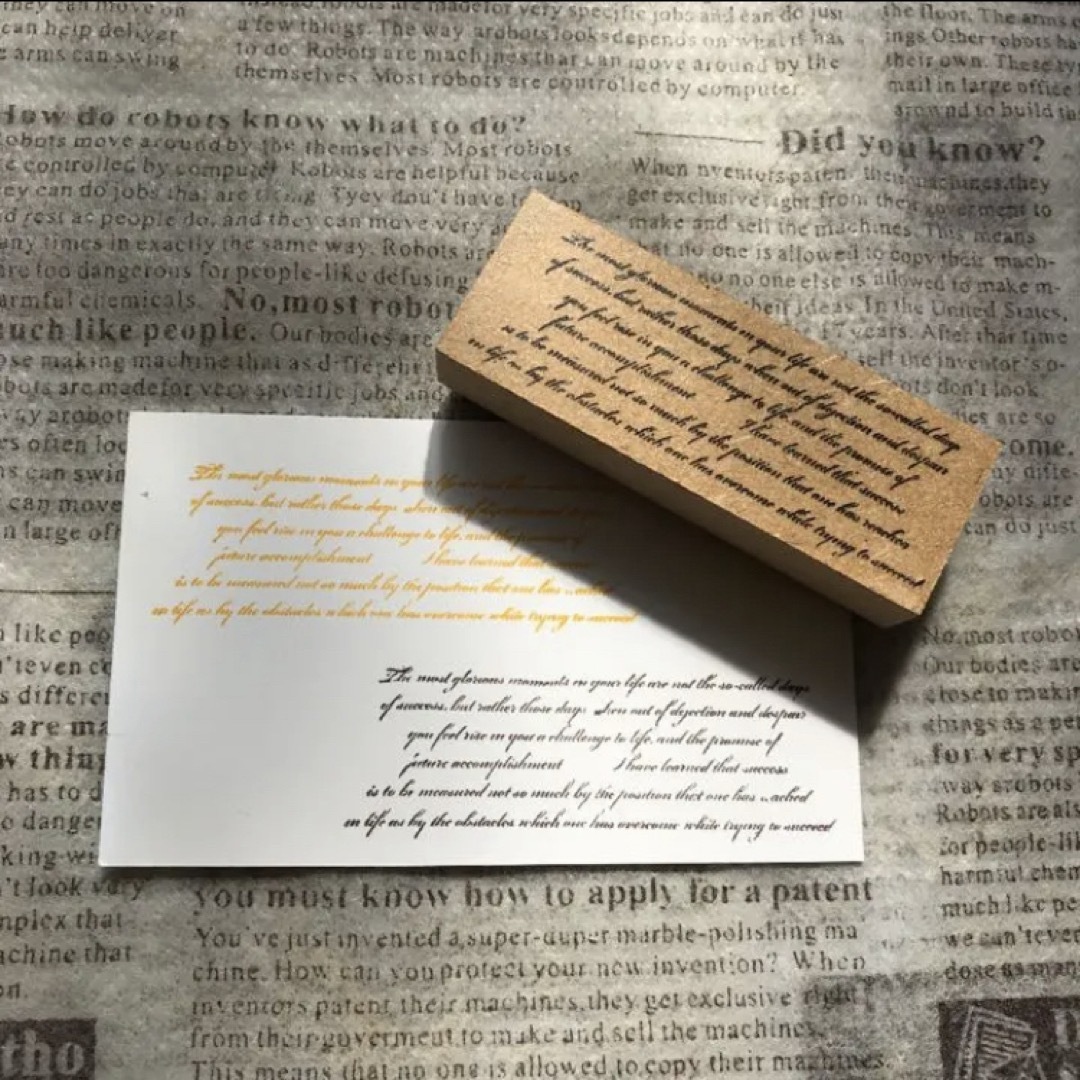 they can move on
can help deliver
e arms can swing
a few things. The way arobotslooksdepends on what it has
to do. Robots are machines that can move around by the
themselves. Most robots are controlled by computer.
the floor. The arms
ings Other robots ha
their own. These ty
mail in large office
around to build the
How do robots know what to do?
obots move around by the themselves. Most robots
e controlled by computer Robots are helpful because
ey can do jobs that are Tyey don't have to
d rest as people do, and they can move very
any times in exactly the same way. Robots are
are too dangerous for people-like defusing
armful chemicals. No,most robot
uch like people. Our bodies are
ose making machine that as different
bots are madefor very specific jobs and
Did you know?
When nventors paten their machines,they
get exclusive right from their goverment to
make and sell the machines. This means
at no one is allowed to copy their mach-
no one else is allowed to make m-
their ideas In the United States,
17 years. After that time
sell the inventor's o-
ots don't look
The most glorious moments in your life are not the so-called day
of success, but rather those days when out of dejection and despair
you feel rise in you a challenge to life, and the promise of
future accomplishment I have learned that success
is to be measured not so much by the position that one has reached
in life as by the obstacles which one has overcome while trying to succeed
The most glorious moments in your life
of success, but rather those days
you feel rise in you a challenge to life, and the promise of
future accomplishment I have learned that
is to be measured not so much by the position that one has
in life as by the obstacles which one has overcome while trying to succeed
The most glorious moments in your life are not the so-called days
of success, but rather those days when out of dejection and despair
you feel rise in you a challenge to life, and the promise of
future accomplishment I have learned that success
is to be measured not so much by the position that one has reached
in life as by the obstacles which one has overcome while trying to succeed
way arobot
s often loo
s can swin
can move
n large off
come.
ny diffe-
obots are
can do just
like peo
n'teven co
s differen
are ma
w thing
has to d
o danger
king wi
't look vary
mplex that
achine that
on.
No,most robot
Our bodies are
close to makin
things as a per
for very sp
way arobots
Robots are als
for people-lik
harmful chem
much like pe
we can'tever
dose as man
You must know how to apply for a patent
You've just invented a super-duper marble-polishing ma
chine. How can you protect your new invention? When
inventors patent their machines,they get exclusive right
from their goverment to make and sell the machines.
This means that no one is allowed to copy their machines.
tho